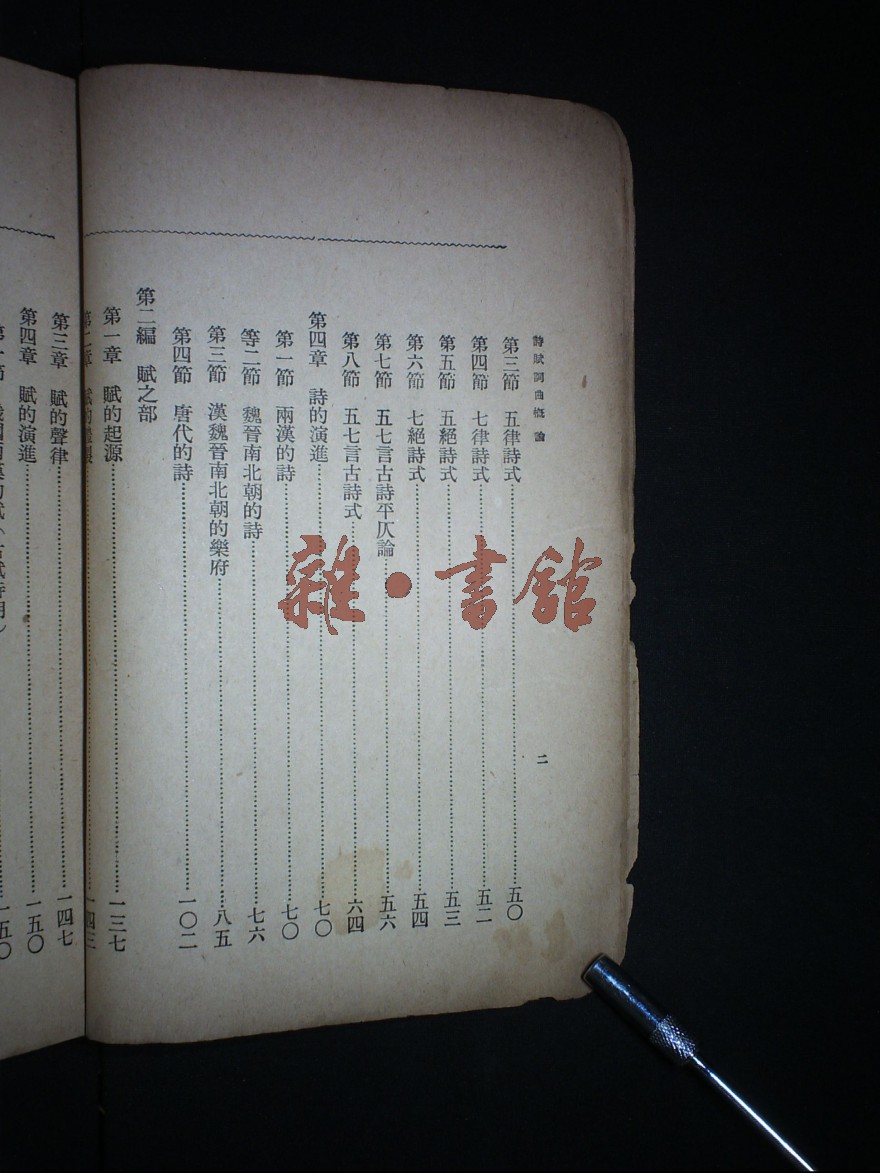 詩賦詞曲概論
二
第三節 五律詩式……五〇
第四節 七律詩式……五二
第五節 五絕詩式……五三
第六節 七絕詩式……五四
第七節 五七言古詩平仄論……五六
第八節 五七言古詩式……六四
第四章 詩的演進……七〇
第一節 兩漢的詩……七〇
等二節 魏晉南北朝的詩……七六
第三節 漢魏晉南北朝的樂府……八五
第四節 唐代的詩……一〇二
第二編 賦之部
第一章 賦的起源……一三七
第二章 賦的體製……一四三
第三章 賦的聲律……一四七
第四章 賦的演進……一五〇
一五〇
雜·書館